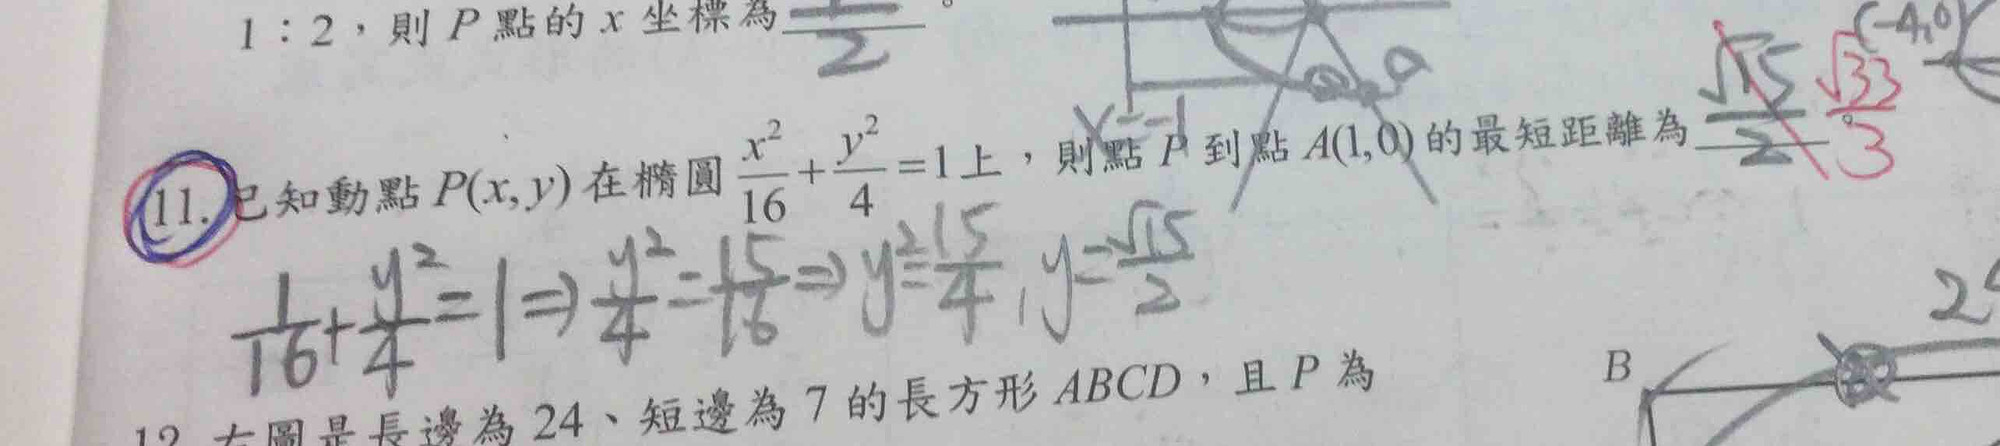 1：2，則 P 點的 x 坐標為 2。
x=-1
(-4,0)
11. 已知動點 P(x, y) 在橢圓 x²/16 + y²/4 = 1 上，則點 P 到點 A(1,0) 的最短距離為 √15/2 √33/3 。
1/16 + y²/4 = 1 ⇒ y²/4 = 15/16 ⇒ y² = 15/4, y = √15/2
B
12. 右圖是長邊為 24、短邊為 7 的長方形 ABCD，且 P 為